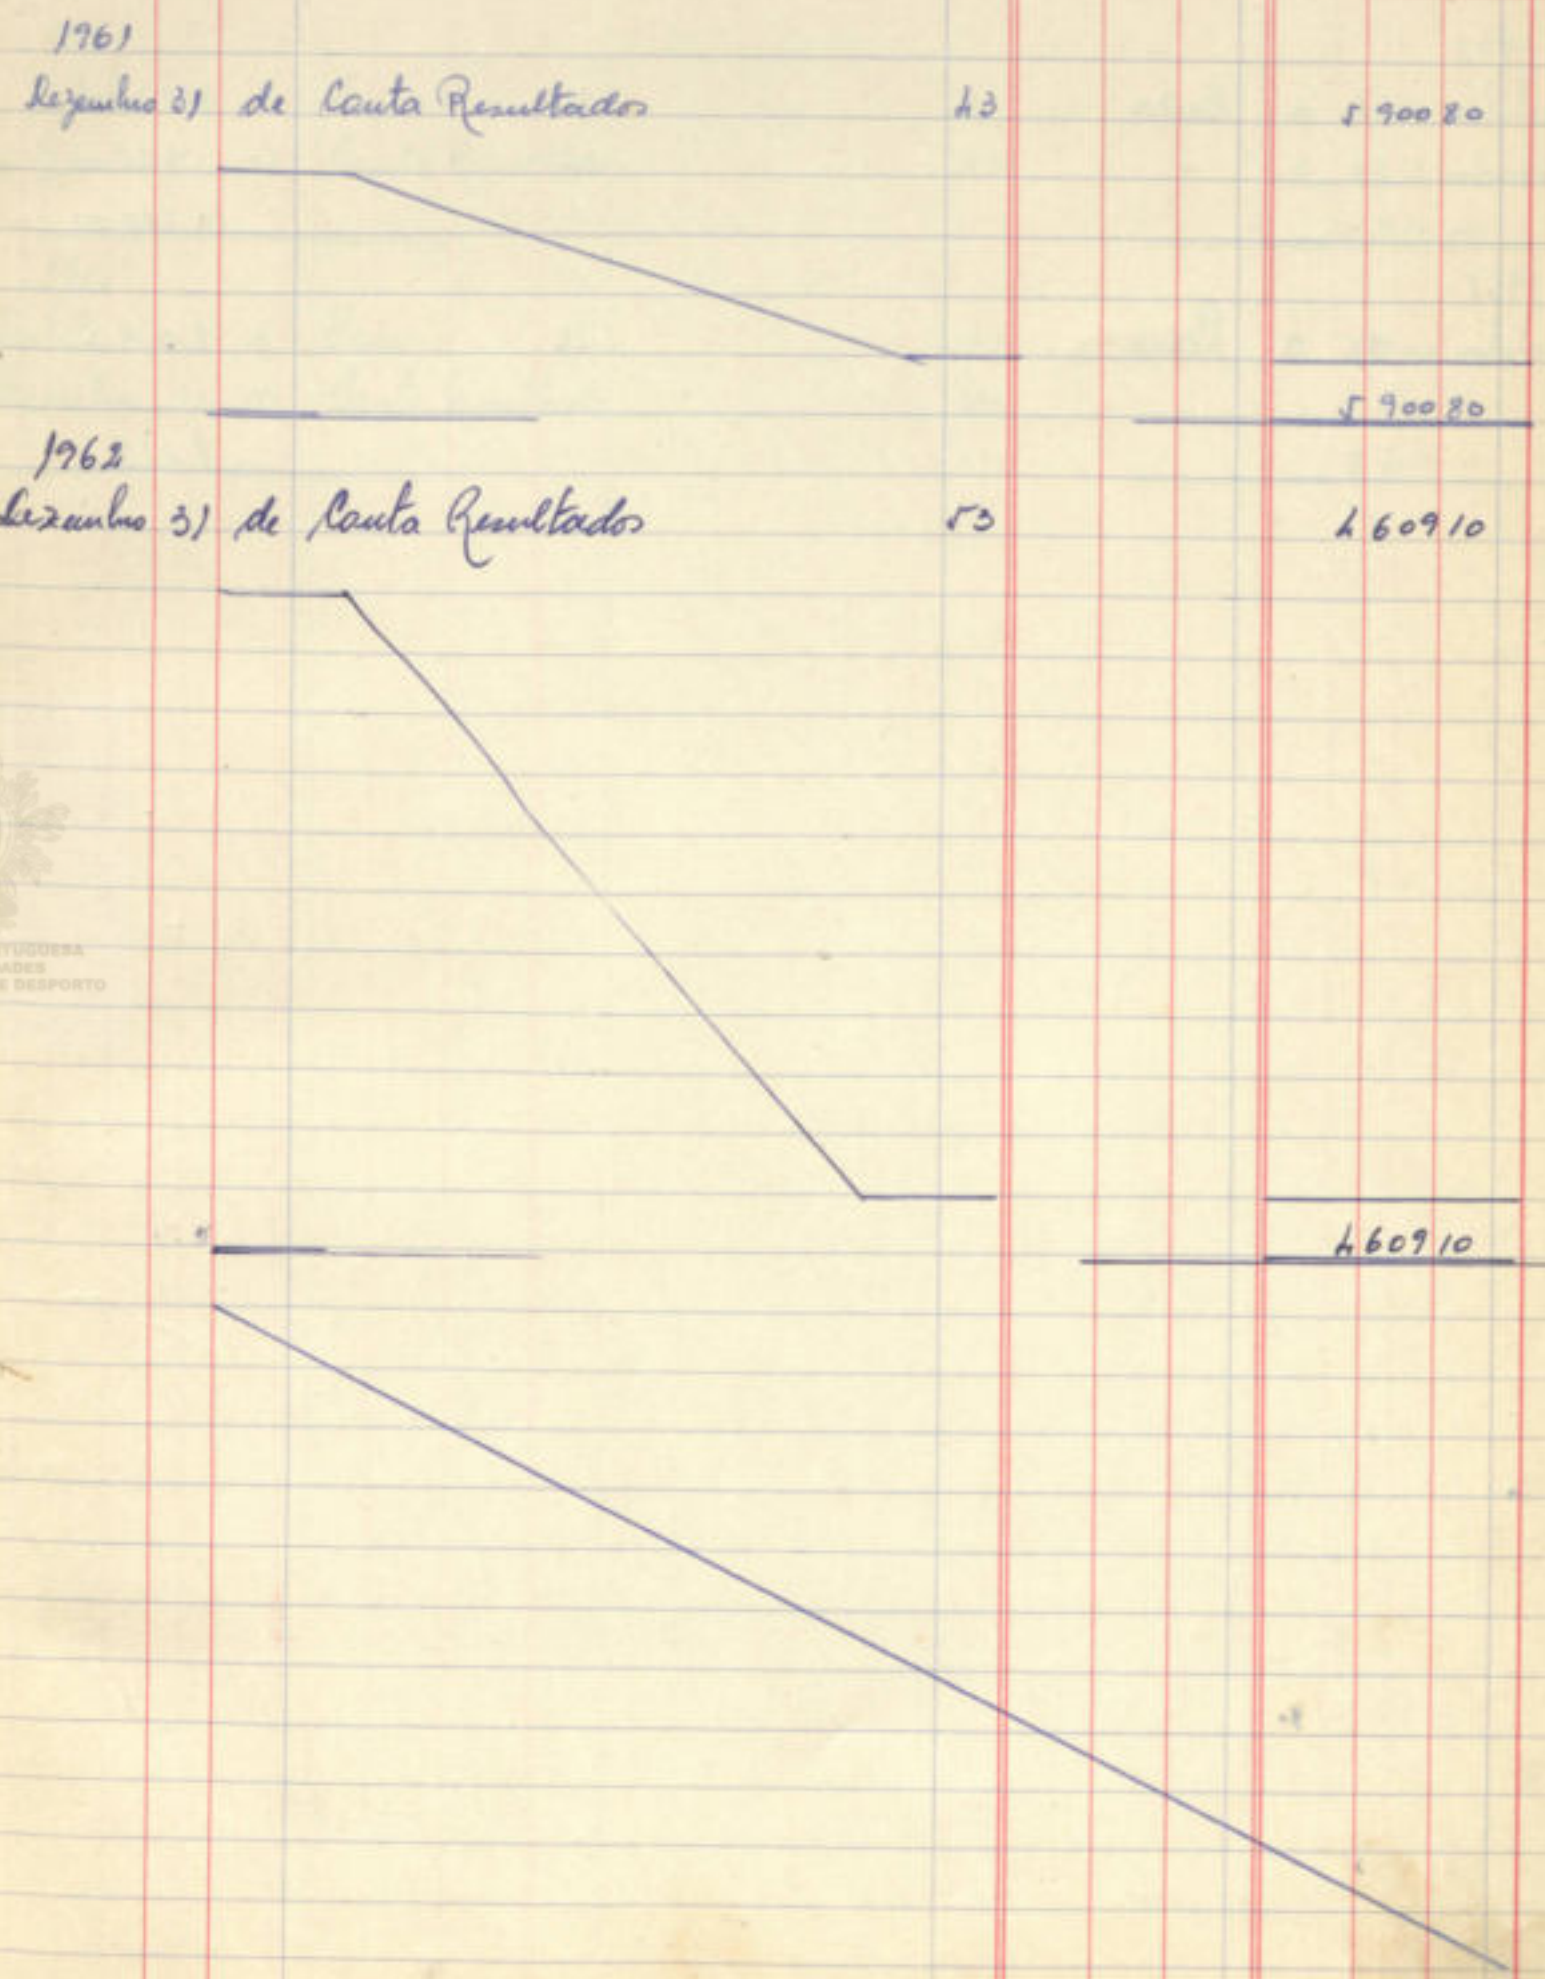 1961
Dezembro 31 de Conta Resultados 43 5 900 80
5 900 80
1962
Dezembro 31 de Conta Resultados 53 4 609 10
4 609 10
TUGUESA
ADES
E DESPORTO